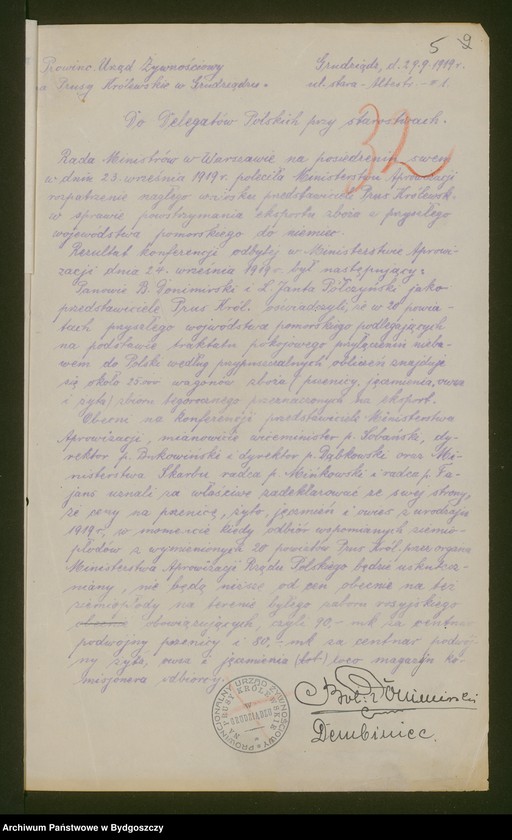 5 2
Prowinc. Urząd Żywnościowy
na Prusy Królewskie w Grudziądzu.
Grudziądz, d. 29.9.1919 r.
ul. stara
32
Do Delegatów Polskich przy starostwach.
Rada Ministrów w Warszawie na posiedzeniu swem
w dniu 23. września 1919 r. poleciła Ministerstwu Aprowizacji
rozpatrzenie nagłego wniosku przedstawicieli Prus Królewsk.
w sprawie powstrzymania eksportu zboża z przyszłego
województwa pomorskiego do niemiec.
Rezultat konferencji odbytej w Ministerstwie Aprowi-
zacji dnia 24. września 1919 r. był następujący:
Panowie B. Donimirski i L. Janta Połczyński jako
przedstawiciele Prus Król. oświadczyli, że w 20 powia-
tach przyszłego wojewódstwa pomorskiego podlegających
na podstawie traktatu pokojowego przyłączeniu nieba-
wem do Polski według przypuszczalnych obliczeń znajduje
się około 25000 wagonów zboża (pszenicy, jęczmienia, owsa
i żyta) zbioru tegorocznego przeznaczonych na eksport.
Obecni na konferencji przedstawiciele Ministerstwa
Aprowizacji, mianowicie wiceminister p. Sobański, dy-
rektor p. Bukowiński i dyrektor p. Dąbkowski oraz Mi-
nisterstwa Skarbu radca p. Minkowski i radca p. Fa-
jans uznali za właściwe zadeklarować ze swej strony,
że ceny na pszenicę, żyto, jęczmień i owies z urodzaju
1919 r., w momencie kiedy odbiór wspomnianych ziemio-
płodów z wymienionych 20 powiatów Prus Król. przez organa
Ministerstwa Aprowizacji Rządu Polskiego będzie uskutecz-
niany, nie będą niższe od cen obecnie na też
ziemiopłody na terenie byłego zaboru rosyjskiego
obecnie obowiązujących, czyli 90.- mk za centnar
podwójny pszenicy i 80.- mk za centnar podwój-
ny żyta, owsa i jęczmienia (bob) loco magazyn ko-
misjonera odbiorcy.
PROWINCJONALNY URZĄD ŻYWNOŚCIOWY
NA PRUSY KRÓLEWSKIE
W GRUDZIĄDZU
Dembiniec.
Archiwum Państwowe w Bydgoszczy